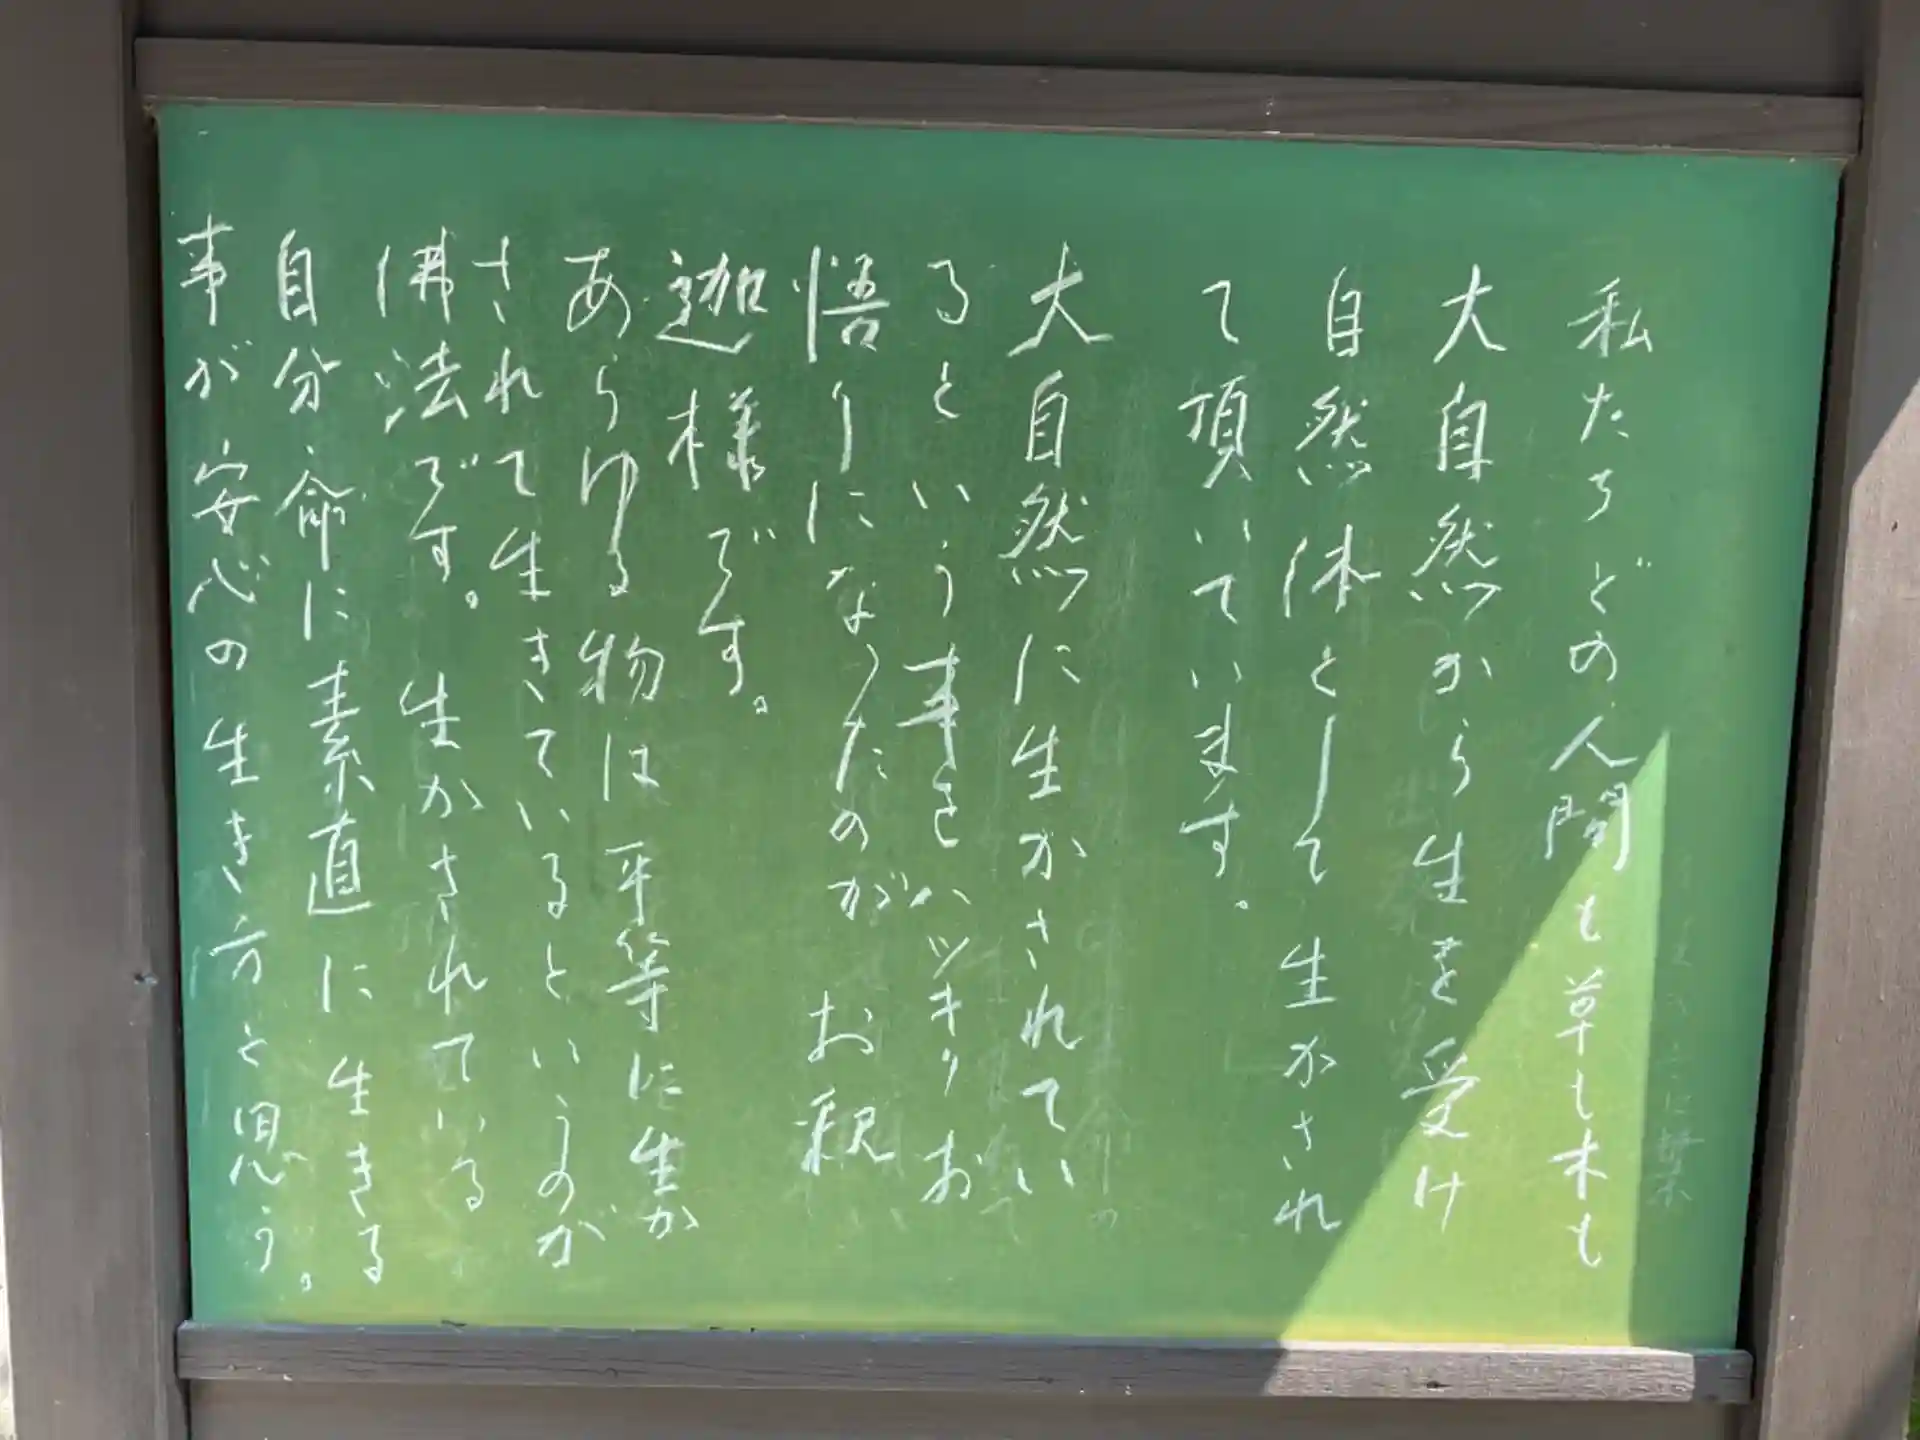 私たちどの人間も草も木も
大自然から生を受け
自然体として生かされ
て頂いています。
大自然に生かされてい
るという事をハツキリお
悟りになったのが お釈
迦様です。
あらゆる物は平等に生か
されて生きているというのが
佛法です。 生かされている
自分、命に素直に生きる
事が安心の生き方と思う。